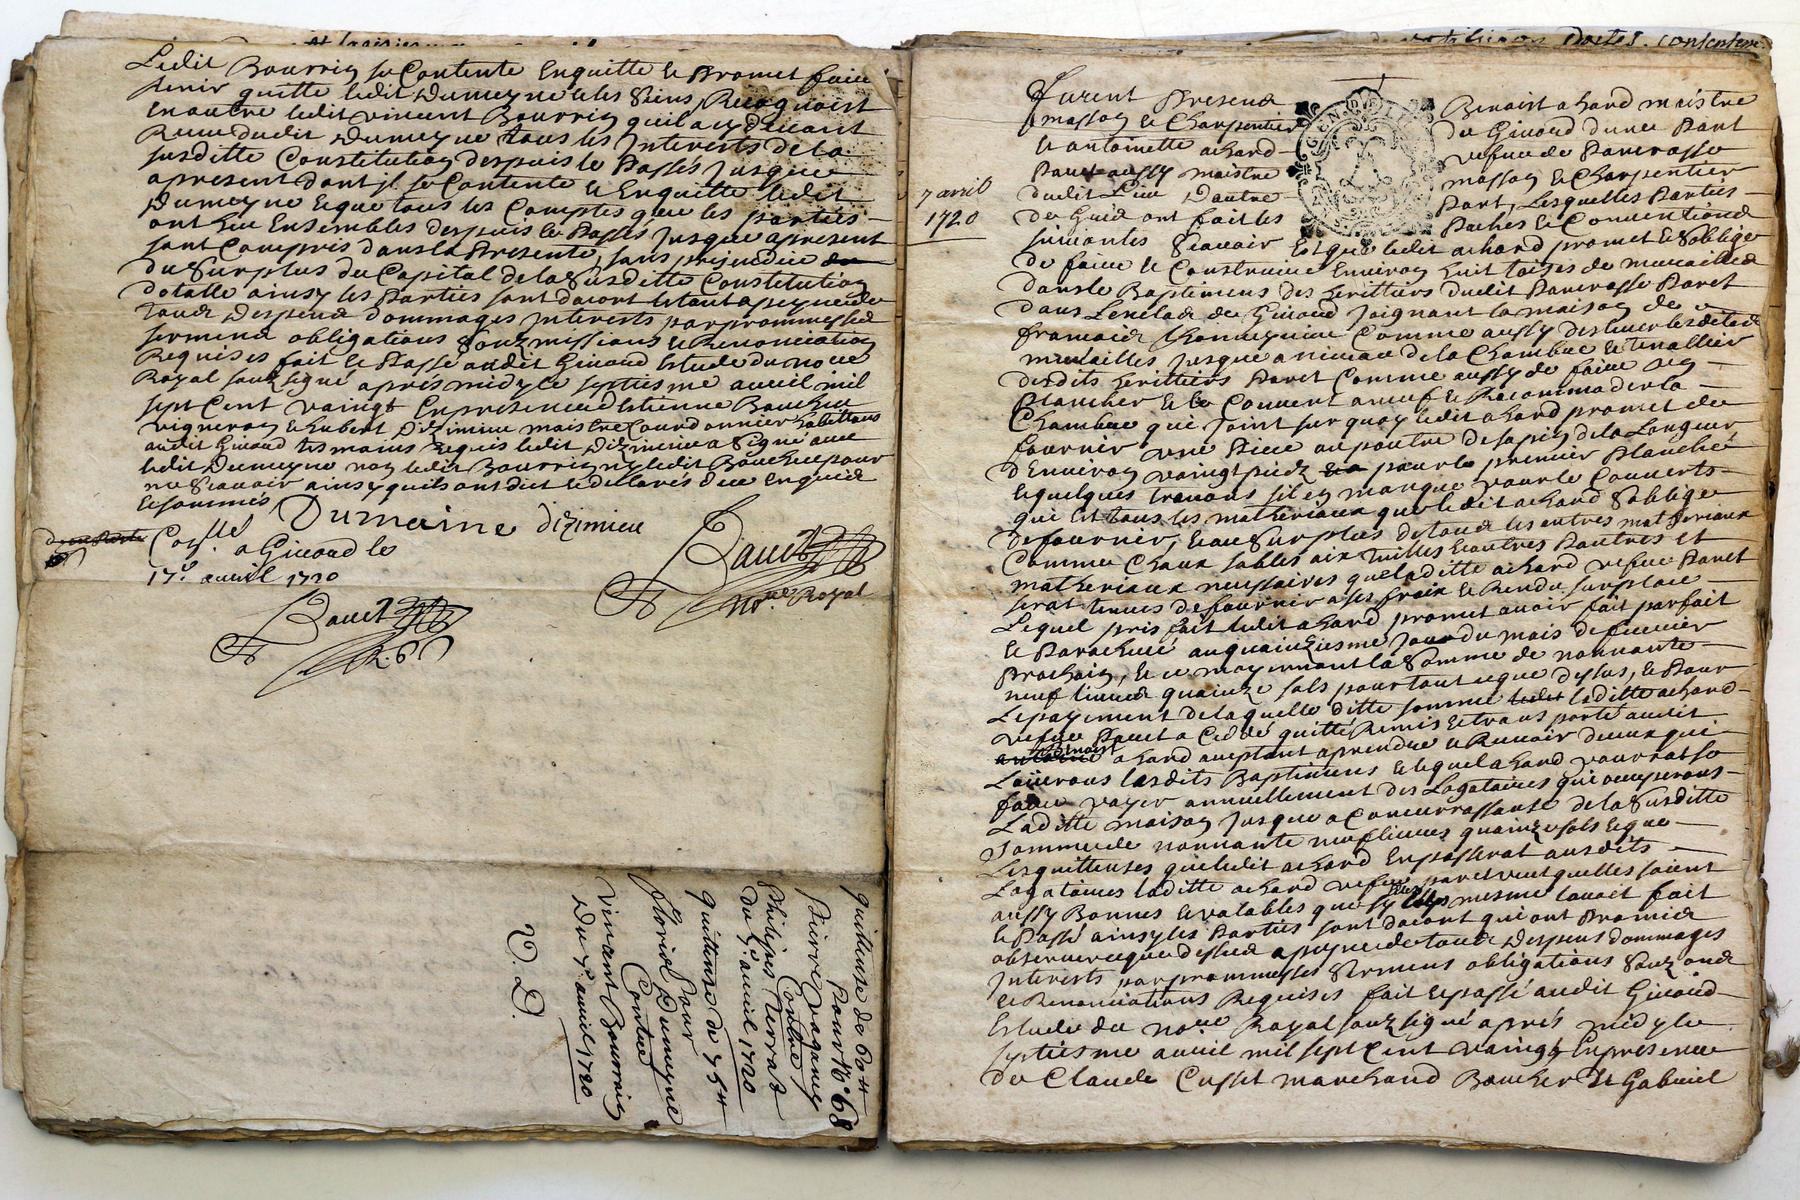 Ledit Bourrin se Contente Enquitte et Promet faire
tenir quitte ledit Dumeyne et les Siens, Recognoist
en outre ledit vincent Bourrin qu'il a cy devant
Receu dudit Dumeyne tous les Interests de la
susditte Constitution despuis le Passés Jusques
apresent dont jl se Contente et Enquitte ledit
Dumeyne et que tous les Comptes que les parties
ont heu Ensembles despuis le Passés Jusque apresent
sont Compris dans la Presente, sans prejudice
du Surplus du Capital de la Susditte Constitution
dotalle ainsy les Parties sont dacort
tous despens dommages Interests par prommesses
serment obligations Soubzmissions et Renonciations
Requises fait et Passé audit Giraud Estude du no.re
Royal soubsigné apres midy le septiesme avril mil
sept Cent vaingt En presence d'Estienne Boucher
vigneron et hubert Dizimieu maistre Courdonnier habittans
audit Giraud tesmoins Requis ledit Dizimieu a Signé avec
ledit Dumeyne non ledit Bourrin ny ledit Boucher pour
ne Scavoir ainsy qu'ils ont dict et declarés de ce Enquis
et sommés
Dumaine dizimieu
Con.llé
a Giraud le
17.e avril 1720
no.re Royal
quittance de 60 lt
Pour N.° 68
Pierre
Contre
Philipes
du 7.e avril 1720
quittance de 75 lt
Pour
Dumeyne
Contre
Vincent Bourrin
Du 7.e avril 1720
V. D.
7 avril
1720
Furent Presens Benoist achard maistre
masson et Charpentier de Giraud d'une Part
Et antoinette achard vefve de Pancrasse
Paret aussy maistre masson et Charpentier
dudit Lieu d'autre Part, Lesquelles Parties
de Gred ont fait les Paches et Conventions
suivantes Scavoir Est que ledit achard promet et S'oblige
de faire et Construire Environ huit toises de murailles
dans le Baptimens des herittiers dudit Pancrasse Paret
dans L'enclos de Giraud Joignant la maison de
francois Comme aussy d'eslever lesdittes
murailles Jusque a niveau de la Chambre et
desdits herittiers Paret Comme aussy de faire un
Plancher et le Couvert a neuf et Recommoder la
Chambre qui Joint sur quoy ledit achard promet de
fournir une Piece ou poutre de sapin de la Longeur
d'Environ vaingt piedz pour le premier Planché
et quelques travons s'il en manque pour le Couverts
qui Est tous les matheriaux que ledit achard S'oblige
de fournir, et au Surplus de tous les autres matheriaux
Comme Chaux sables aix Tuilles et autres
matheriaux necessaires que laditte achard vefve Paret
serat tenues de fournir a ses frais et Rendu sur place
Lequel pris fait ledit achard promet avoir fait parfait
et Parachevé au quainziesme Jour du mois de
Prochain, et ce moyennant la Somme de nonnante
neuf livres quainze sols pour tout ce que dessus, et Pour
Le payement de laquelle ditte somme laditte achard
vefve Paret a Ceddé quitté Remis et transporté audit
Benoist achard acceptant a prendre et Recevoir de ceux qui
Loüerons lesdits Baptimens et lequel achard pourrat se
faire payer annuellement des Logataires qui occuperons
Laditte maison Jusque a Concurrassante de la Susditte
Somme de nonnante neuf livres quainze sols et que
Les quittances que ledit achard En passerat ausdits
Logataires laditte achard vefve paret veut quelles soient
aussy Bonnes et valables que sy elle mesme l'avoit fait
et Passé ainsy les Parties sont dacort qui ont Promis
observer ce que dessus a peyne de tous despens dommages
Interests par prommesses Sermens obligations Soubzons
et Renonciations Requises fait et passé audit Giraud
Estude du no.re Royal soubz signé apres midy le
septiesme avril mil sept Cent vaingt En presence
de Claude Cusset marchand Boucher et Gabriel